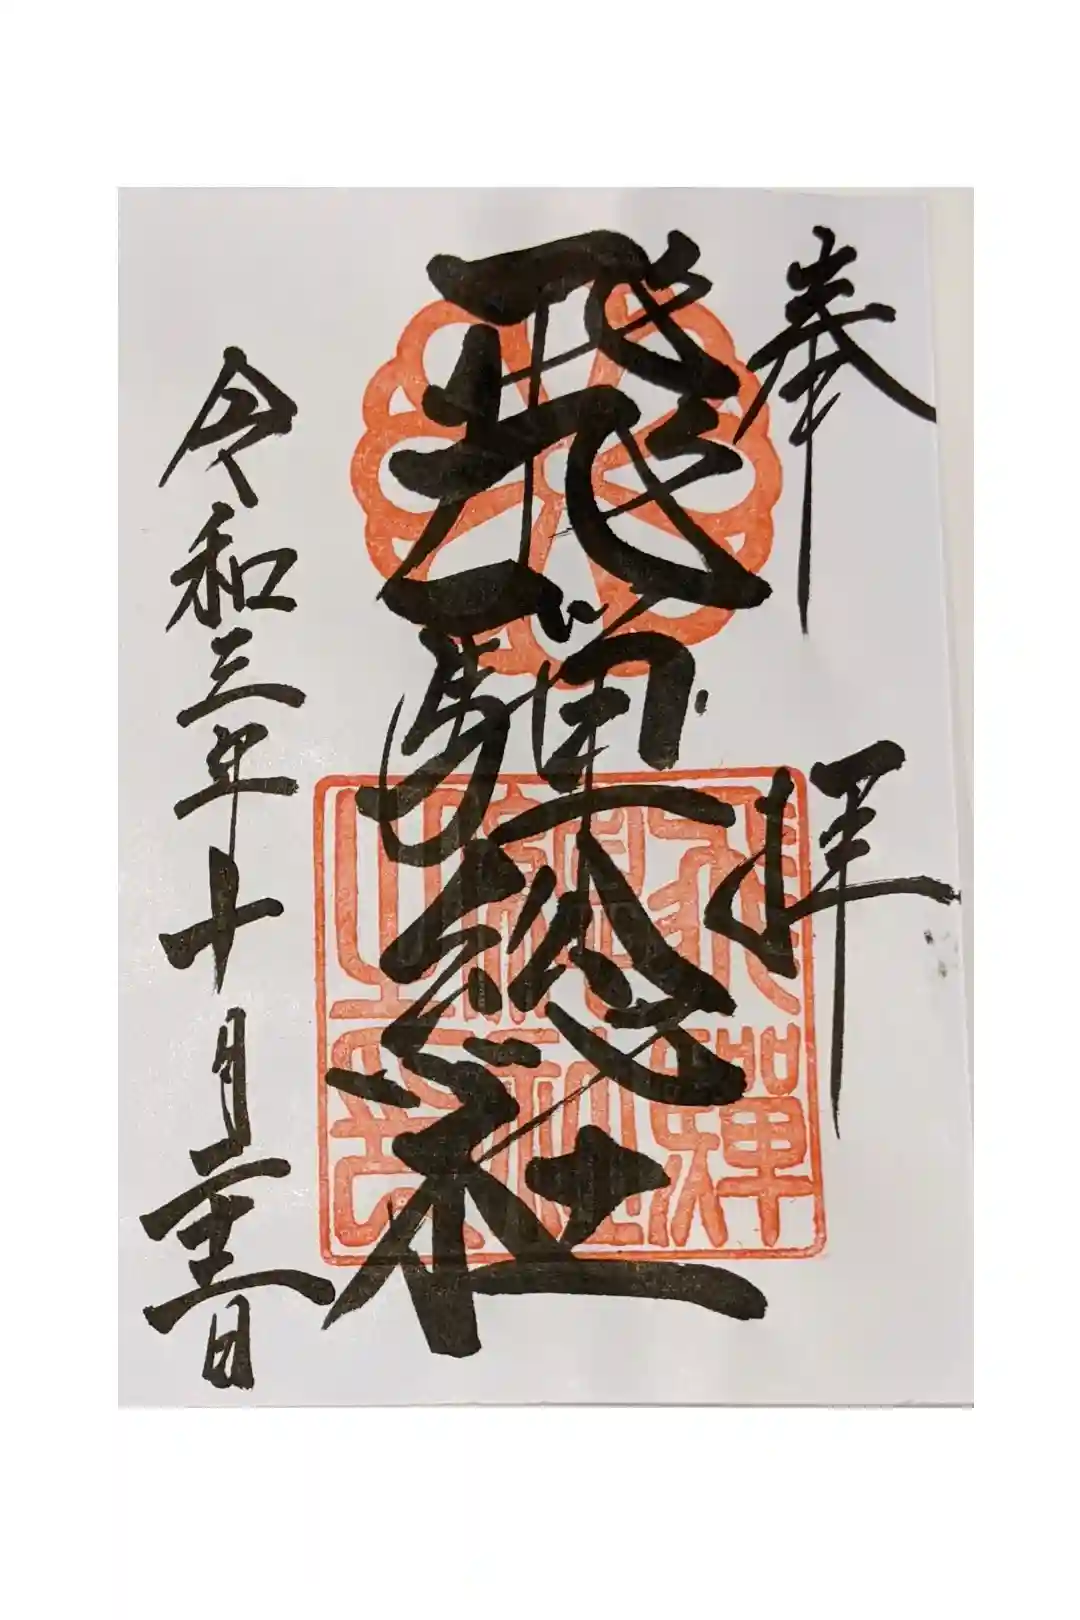 奉拝
飛騨総社
飛騨
總社
之印
令和三年十月二十三日